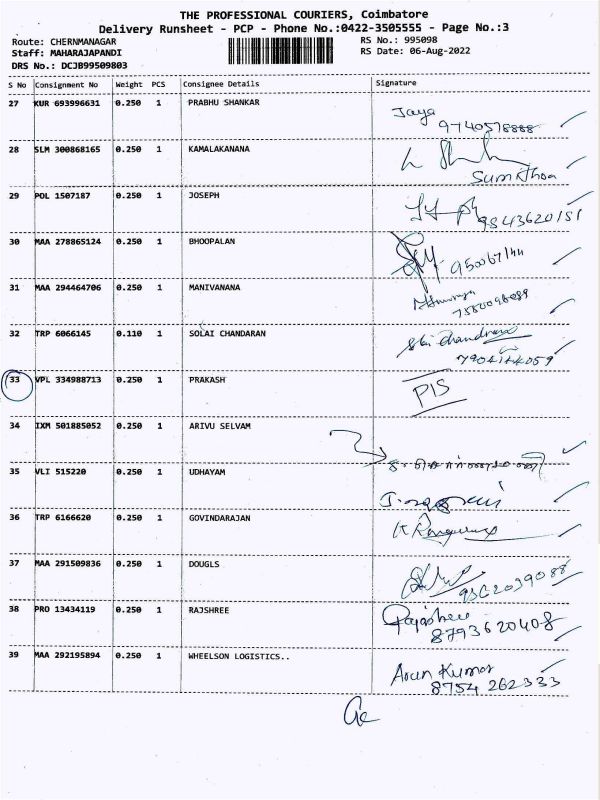 THE PROFESSIONAL COURIERS, Coimbatore
Delivery Runsheet - PCP - Phone No.:0422-3505555 - Page No.:3
Route: CHERNMANAGAR RS No.: 995098
Staff: MAHARAJAPANDI RS Date: 06-Aug-2022
DRS No.: DCJB99509803
S No Consignment No Weight PCS Consignee Details Signature
27 KUR 693996631 0.250 1 PRABHU SHANKAR Jaya
9740578888
28 SLM 300868165 0.250 1 KAMALAKANANA
Sumithoa
29 POL 1507187 0.250 1 JOSEPH
9843620151
30 MAA 278865124 0.250 1 BHOOPALAN
31 MAA 294464706 0.250 1 MANIVANANA
32 TRP 6066145 0.110 1 SOLAI CHANDARAN
33 VPL 334988713 0.250 1 PRAKASH PIS
34 IXM 501885052 0.250 1 ARIVU SELVAM
35 VLI 515220 0.250 1 UDHAYAM
36 TRP 6166620 0.250 1 GOVINDARAJAN
37 MAA 291509836 0.250 1 DOUGLS
38 PRO 13434119 0.250 1 RAJSHREE Rajashree
8793620408
39 MAA 292195894 0.250 1 WHEELSON LOGISTICS.. Arun Kumar
8754 262333